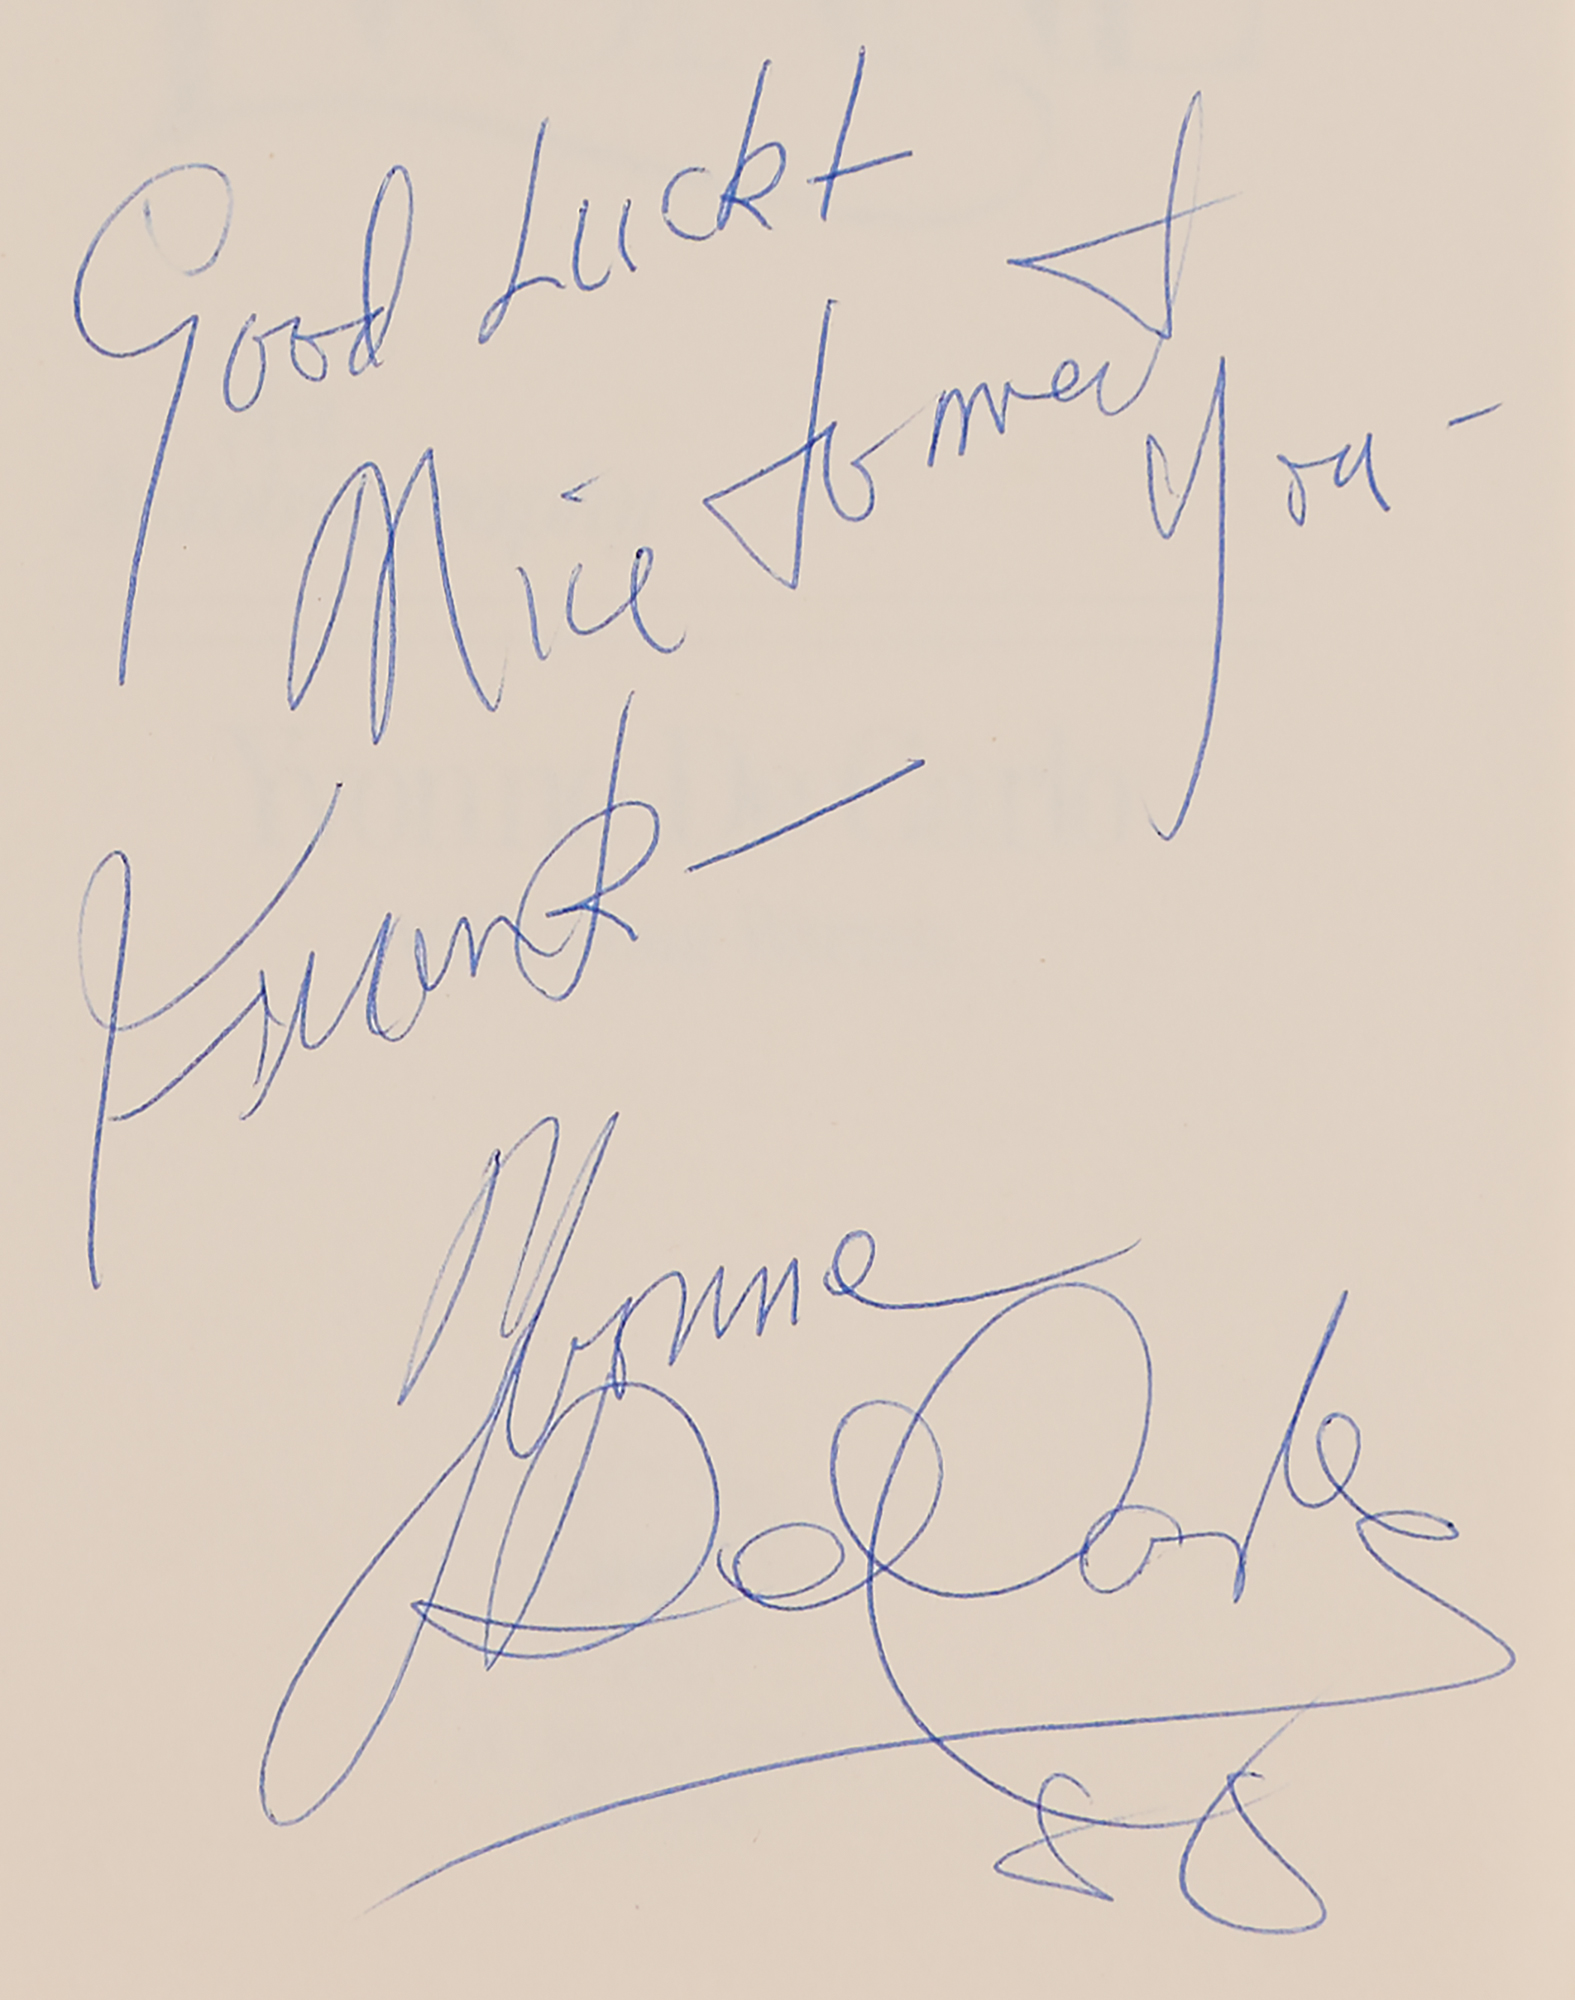 Good Luck +
Nice to meet you -
Frank -
Yvonne
DeCarlo
88